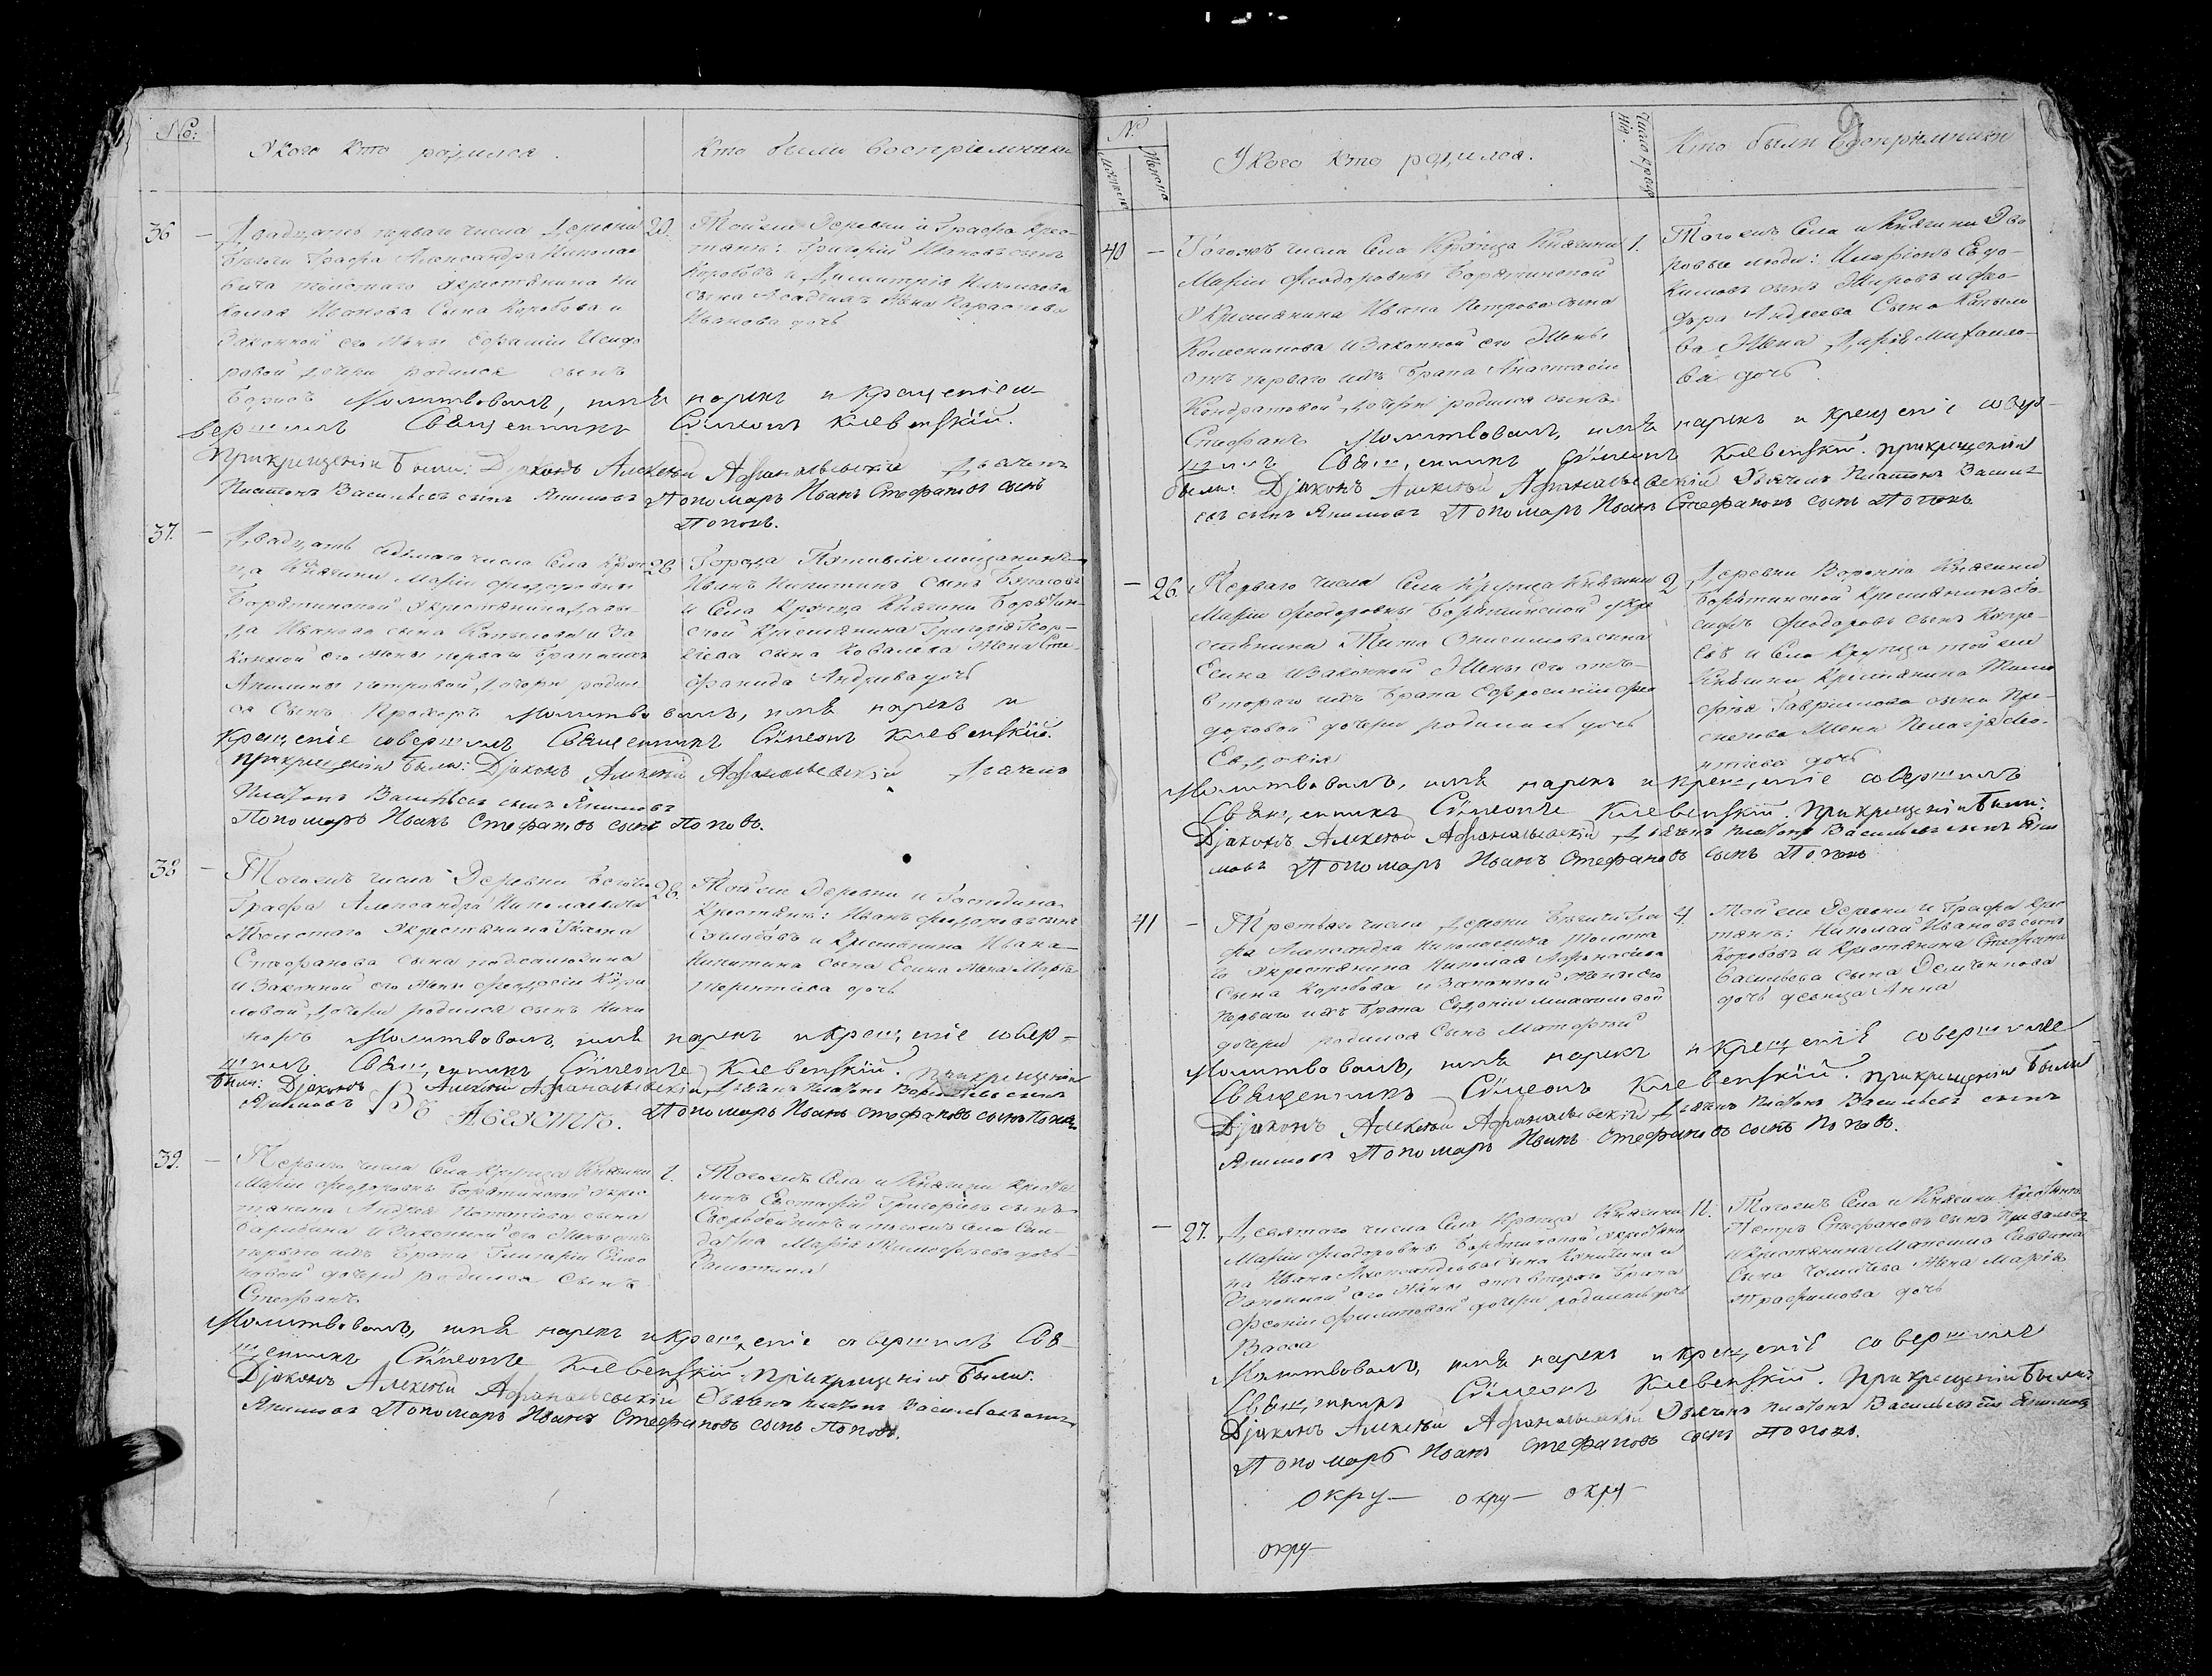 №:
У кого кто родился.
Кто были восприемники
36 –
Двадцать перваго числа Деревни
Бегочи Графа Александра Николае
вича Толстаго Укрестьянина Ни
колая Иванова Сына Коробова и
Законной его жены Ефимии Исидо
ровой дочери родился сынъ
Борисъ Молитвовалъ, имя нарекъ и Крещеніе со
вершилъ Священникъ Сѵмеонъ Клевенскій.
При крещеніи были: Діаконъ Алексѣй Афанасьевскій Дьячекъ
Платонъ Васильевъ сынъ Якимовъ Пономарь Иванъ Стефановъ сынъ
Поповъ.
Тойже Деревни и Графа Крес
тьяне: Григорій Ивановъ сынъ
Коробовъ и Димитрія Николаева
сына жена Параскева
Иванова дочь
37. –
Двадцать седьмаго числа Села Круп
ца Княгини Маріи Феодоровны
Барятинской Укрестьянина Давы
да Иванова сына Копылова и За
конной его жены перваго брака
Акилины Петровой дочери родил
ся Сынъ Прохоръ Молитвовалъ, имя нарекъ и
Крещеніе совершилъ Священникъ Сѵмеонъ Клевенскій.
При крещеніи были: Діаконъ Алексѣй Афанасьевскій Дьячекъ
Платонъ Васильевъ сынъ Якимовъ
Пономарь Иванъ Стефановъ сынъ Поповъ.
28
Города Путивля мещанинъ
Иванъ Никитинъ Сынъ
и Села Крупца Княгини Барятин-
ской Крестьянина Григорія Геор-
гіева сына Ковалева жена Сте-
фанида Андреева дочь
38 –
Тогожъ числа Деревни Бегочи
Графа Александра Николаевича
Толстаго Укрестьянина
Стефанова сына
и Законной его жены Феодосіи Кири
ловой дочери родился сынъ Ники
форъ Молитвовалъ, имя нарекъ и Крещеніе совер-
шилъ Священникъ Сѵмеонъ Клевенскій. При крещеніи
были: Діаконъ Алексѣй Афанасьевскій Дьячекъ Платонъ Васильевъ сынъ
Якимовъ Пономарь Иванъ Стефановъ сынъ Поповъ
28.
Тойже Деревни и Господина
Крестьяне: Иванъ Феодоровъ сынъ
и Крестьянина Ивана
Никитина сына Есина жена Марѳа
Терентіева дочь
Въ Августѣ.
39. –
Перваго числа Села Крупца Княгини
Маріи Феодоровны Барятинской Укрес
тьянина Андрея Потапова сына
и Законной его жены отъ
перваго ихъ брака Гликеріи Симо
новой дочери родился Сынъ
Стефанъ
Молитвовалъ, имя нарекъ и Крещеніе совершилъ Свя-
щенникъ Сѵмеонъ Клевенскій. При крещеніи были:
Діаконъ Алексѣй Афанасьевскій Дьячекъ Платонъ Васильевъ сынъ
Якимовъ Пономарь Иванъ Стефановъ сынъ Поповъ.
1.
Тогожъ Села и Княгини Крестья
нинъ Евстафій Григорьевъ сынъ
и тогожъ села Сол-
датка Марія Тимофеева дочь
№
Мужеска
Женска
У кого кто родился.
Число креще
нія.
Кто были Восприемники
40 –
Тогожъ числа Села Крупца Княгини
Маріи Феодоровны Барятинской
Укрестьянина Ивана Петрова сына
Колесникова и Законной его Жены
отъ перваго ихъ брака Анастасіи
Кондратовой дочери родился сынъ
Стефанъ Молитвовалъ, имя нарекъ и крещеніе совер-
шилъ Священникъ Сѵмеонъ Клевенскій. При крещеніи
были: Діаконъ Алексѣй Афанасьевскій Дьячекъ Платонъ Василь
евъ сынъ Якимовъ Пономарь Иванъ Стефановъ сынъ Поповъ
1.
Тогожъ Села и Княгини Дво
ровые люди: Иларіонъ Евдо-
кимовъ сынъ Жировъ и Фео-
дора Андреева Сына Копыло
ва Жена Дарія Михайло-
ва дочь.
– 26.
Перваго числа Села Крупца Княгини
Маріи Феодоровны Барятинской Укре
стьянина Тита Онисимова сына
Есина и Законной Жены его отъ
втораго ихъ брака Ефросиніи Фео
доровой дочери родилась дочь
Евдокія
Молитвовалъ, имя нарекъ и крещеніе совершилъ
Священникъ Сѵмеонъ Клевенскій. При крещеніи были:
Діаконъ Алексѣй Афанасьевскій Дьячекъ Платонъ Васильевъ сынъ Яки
мовъ Пономарь Иванъ Стефановъ сынъ Поповъ
2
Деревни Воронка Княгини
Барятинской Крестьянинъ Іо
сифъ Феодоровъ сынъ
и Села Крупца той же
Княгини Крестьянина Тимо
фея Гаврилова сына
Жена Пелагея
дочь
41 –
Третьяго числа Деревни Бегочи Гра
фа Александра Николаевича Толста
го Укрестьянина Николая Афанасьева
Сына Коробова и Законной Жены его
перваго ихъ брака Евдокіи
дочери родился Сынъ Матофей
Молитвовалъ, имя нарекъ и крещеніе совершилъ
Священникъ Сѵмеонъ Клевенскій. При крещеніи были
Діаконъ Алексѣй Афанасьевскій Дьячекъ Платонъ Васильевъ сынъ
Якимовъ Пономарь Иванъ Стефановъ сынъ Поповъ.
4.
Тойже Деревни и Графа Крес
тьяне: Николай Ивановъ сынъ
Коробовъ и Крестьянина Стефана
Васильева сына
дочь девица Анна
– 27.
Десятаго числа Села Крупца Княгини
Маріи Феодоровны Барятинской Укрестьяни
на Ивана Александрова сына и
Законной его Жены отъ втораго брака
Филиповой дочери родилась дочь
Васса
Молитвовалъ, имя нарекъ и крещеніе совершилъ
Священникъ Сѵмеонъ Клевенскій. При крещеніи были:
Діаконъ Алексѣй Афанасьевскій Дьячекъ Платонъ Васильевъ сынъ Якимовъ
Пономарь Иванъ Стефановъ сынъ Поповъ.
11.
Тогожъ Села и Княгини Крестьяне
Петръ Стефановъ сынъ
и Крестьянина Максима Саввина
Сына Жена Марія
Трофимова дочь
окру– окру– окру–
окру–